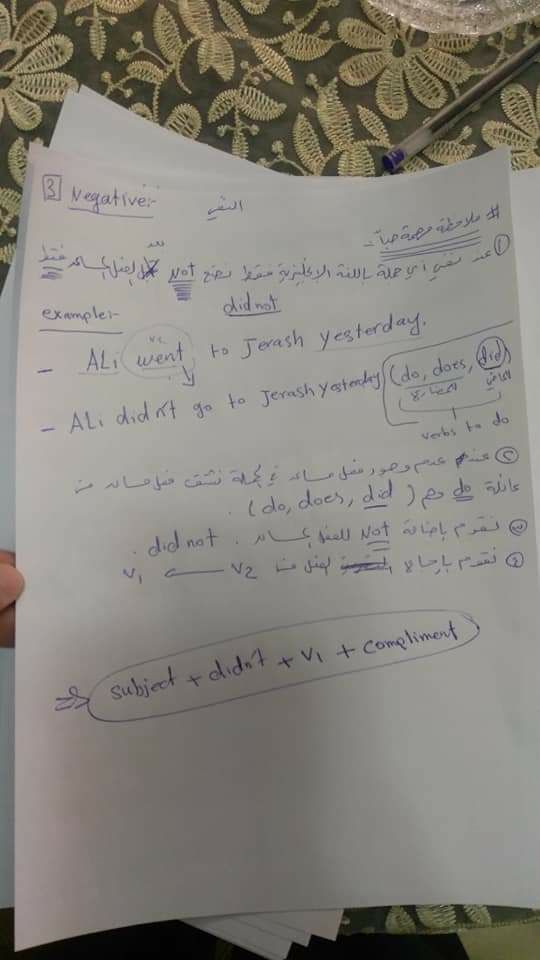 3 Negative:- النفي
# ملاحظة مهمة جداً :-
① عند نفي أي جملة باللغة الإنجليزية فقط نضع Not بعد الفعل المساعد فقط
did not
example:-
V2
- ALi went to Jerash yesterday.
- ALi didn't go to Jerash yesterday (do, does, did)
المضارع الماضي
verbs to do
② عند عدم وجود فعل مساعد في الجملة نشتق فعل مساعد من
عائلة do وهم (do, does, did) .
③ نقوم بإضافة Not للفعل المساعد . did not .
④ نقوم بإرجاع الفعل من V2 ← V1
⇒ subject + didn't + V1 + compliment